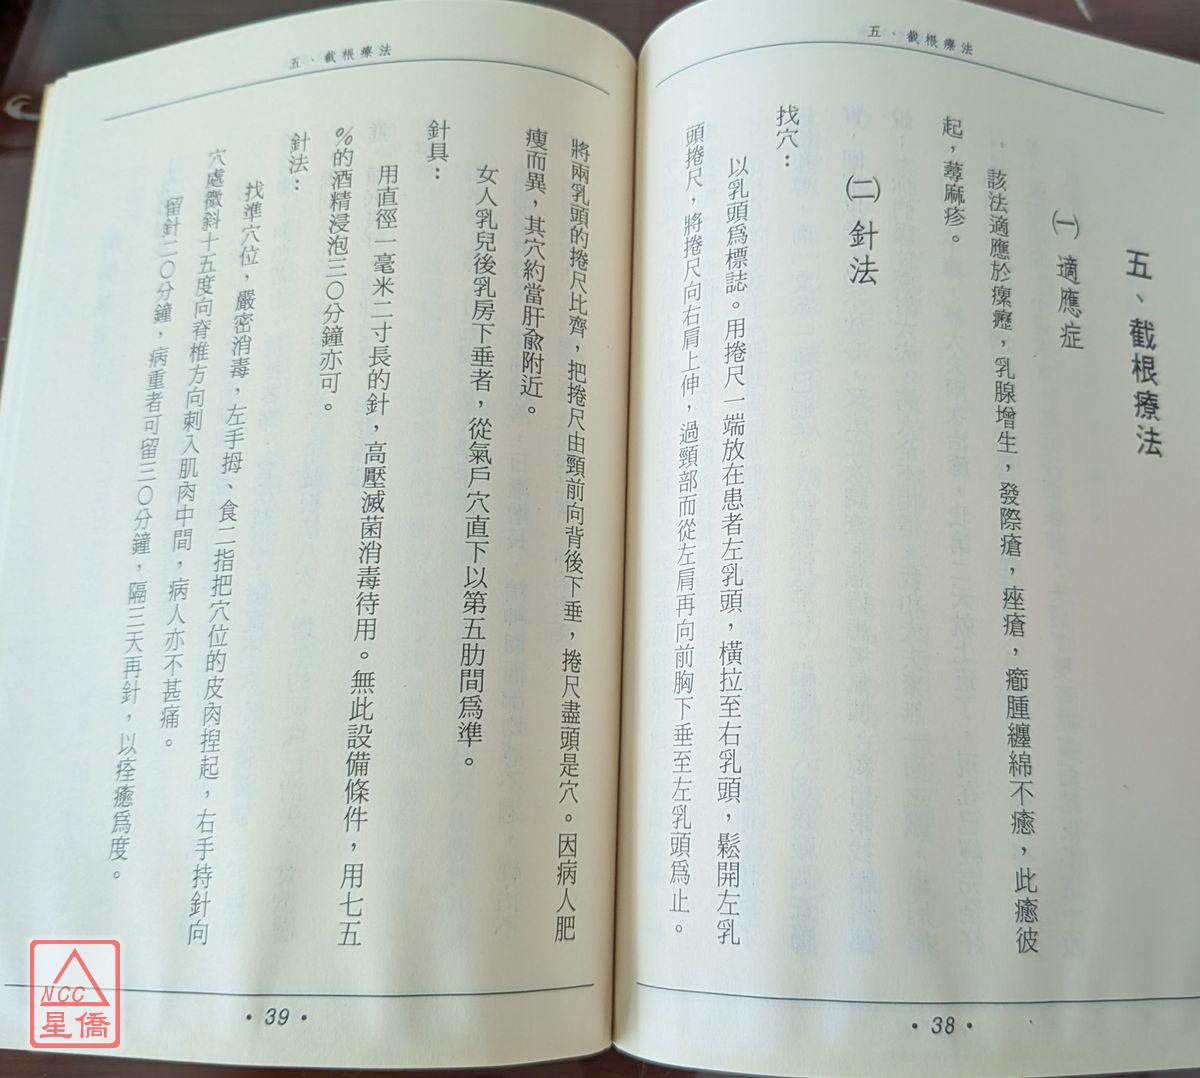 五、截根療法
五、截根療法
㈠ 適應症
該法適應於瘰癧，乳腺增生，發際瘡，痤瘡，癤腫纏綿不癒，此癒彼
起，蕁麻疹。
㈡ 針法
找穴：
以乳頭爲標誌。用捲尺一端放在患者左乳頭，橫拉至右乳頭，鬆開左乳
頭捲尺，將捲尺向右肩上伸，過頸部而從左肩再向前胸下垂至左乳頭爲止。
•38•
五、截根療法
將兩乳頭的捲尺比齊，把捲尺由頸前向背後下垂，捲尺盡頭是穴。因病人肥
瘦而異，其穴約當肝兪附近。
女人乳兒後乳房下垂者，從氣戶穴直下以第五肋間爲準。
針具：
用直徑一毫米二寸長的針，高壓滅菌消毒待用。無此設備條件，用七五
%的酒精浸泡三〇分鐘亦可。
針法：
找準穴位，嚴密消毒，左手拇、食二指把穴位的皮肉揑起，右手持針向
穴處微斜十五度向脊椎方向刺入肌肉中間，病人亦不甚痛。
留針二〇分鐘，病重者可留三〇分鐘，隔三天再針，以痊癒爲度。
•39•
NCC
星僑